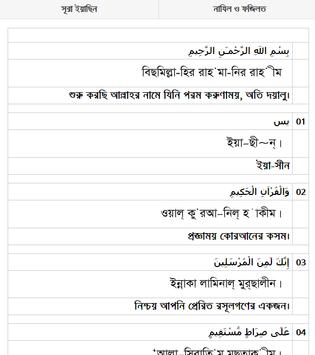 সূরা ইয়াছিন
নাযিল ও ফজিলত
بِسْمِ اللَّهِ الرَّحْمَـٰنِ الرَّحِيمِ
বিছমিল্লা-হির রাহ´মা-নির রাহ´ীম
শুরু করছি আল্লাহর নামে যিনি পরম করুণাময়, অতি দয়ালু।
01 يس
ইয়া–ছী~ন্।
ইয়া-সীন
02 وَالْقُرْآنِ الْحَكِيمِ
ওয়াল্ কু´রআ–নিল্ হ´াকীম।
প্রজ্ঞাময় কোরআনের কসম।
03 إِنَّكَ لَمِنَ الْمُرْسَلِينَ
ইন্নাকা লামিনাল্ মুর্ছালীন।
নিশ্চয় আপনি প্রেরিত রসূলগণের একজন।
04 عَلَىٰ صِرَاطٍ مُّسْتَقِيمٍ
‘আলা–সিরাতি´ম্ মুছতাক´ীম।